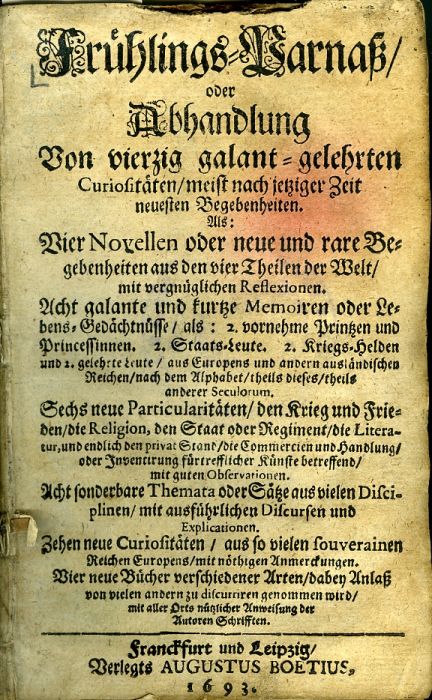 Frühlings-Parnaß/
oder
Abhandlung
Von vierzig galant-gelehrten
Curiositäten/meist nach jetziger Zeit
neuesten Begebenheiten.
Als:
Vier Novellen oder neue und rare Be-
gebenheiten aus den vier Theilen der Welt/
mit vergnüglichen Reflexionen.
Acht galante und kurtze Memoiren oder Le-
bens-Gedächtnüsse/ als: 2. vornehme Printzen und
Princessinnen. 2. Staats-Leute. 2. Kriegs-Helden
und 2. gelehrte Leute/ aus Europens und andern ausländischen
Reichen/nach dem Alphabet/theils dieses/theils
anderer Seculorum.
Sechs neue Particularitäten/den Krieg und Frie-
den/die Religion, den Staat oder Regiment/die Litera-
tur,und endlich den privat Stand/die Commercien und Handlung/
oder Inventirung fürtrefflicher Künste betreffend/
mit guten Observationen.
Acht sonderbare Themata oder Sätze aus vielen Disci-
plinen/ mit ausführlichen Discursen und
Explicationen.
Zehen neue Curiositäten/ aus so vielen souverainen
Reichen Europens/mit nöthigen Anmerckungen.
Vier neue Bücher verschiedener Arten/dabey Anlaß
von vielen andern zu discurriren genommen wird/
mit aller Orts nützlicher Anweisung der
Autoren Schrifften.
Franckfurt und Leipzig/
Verlegts AUGUSTUS BOETIUS,
1693.